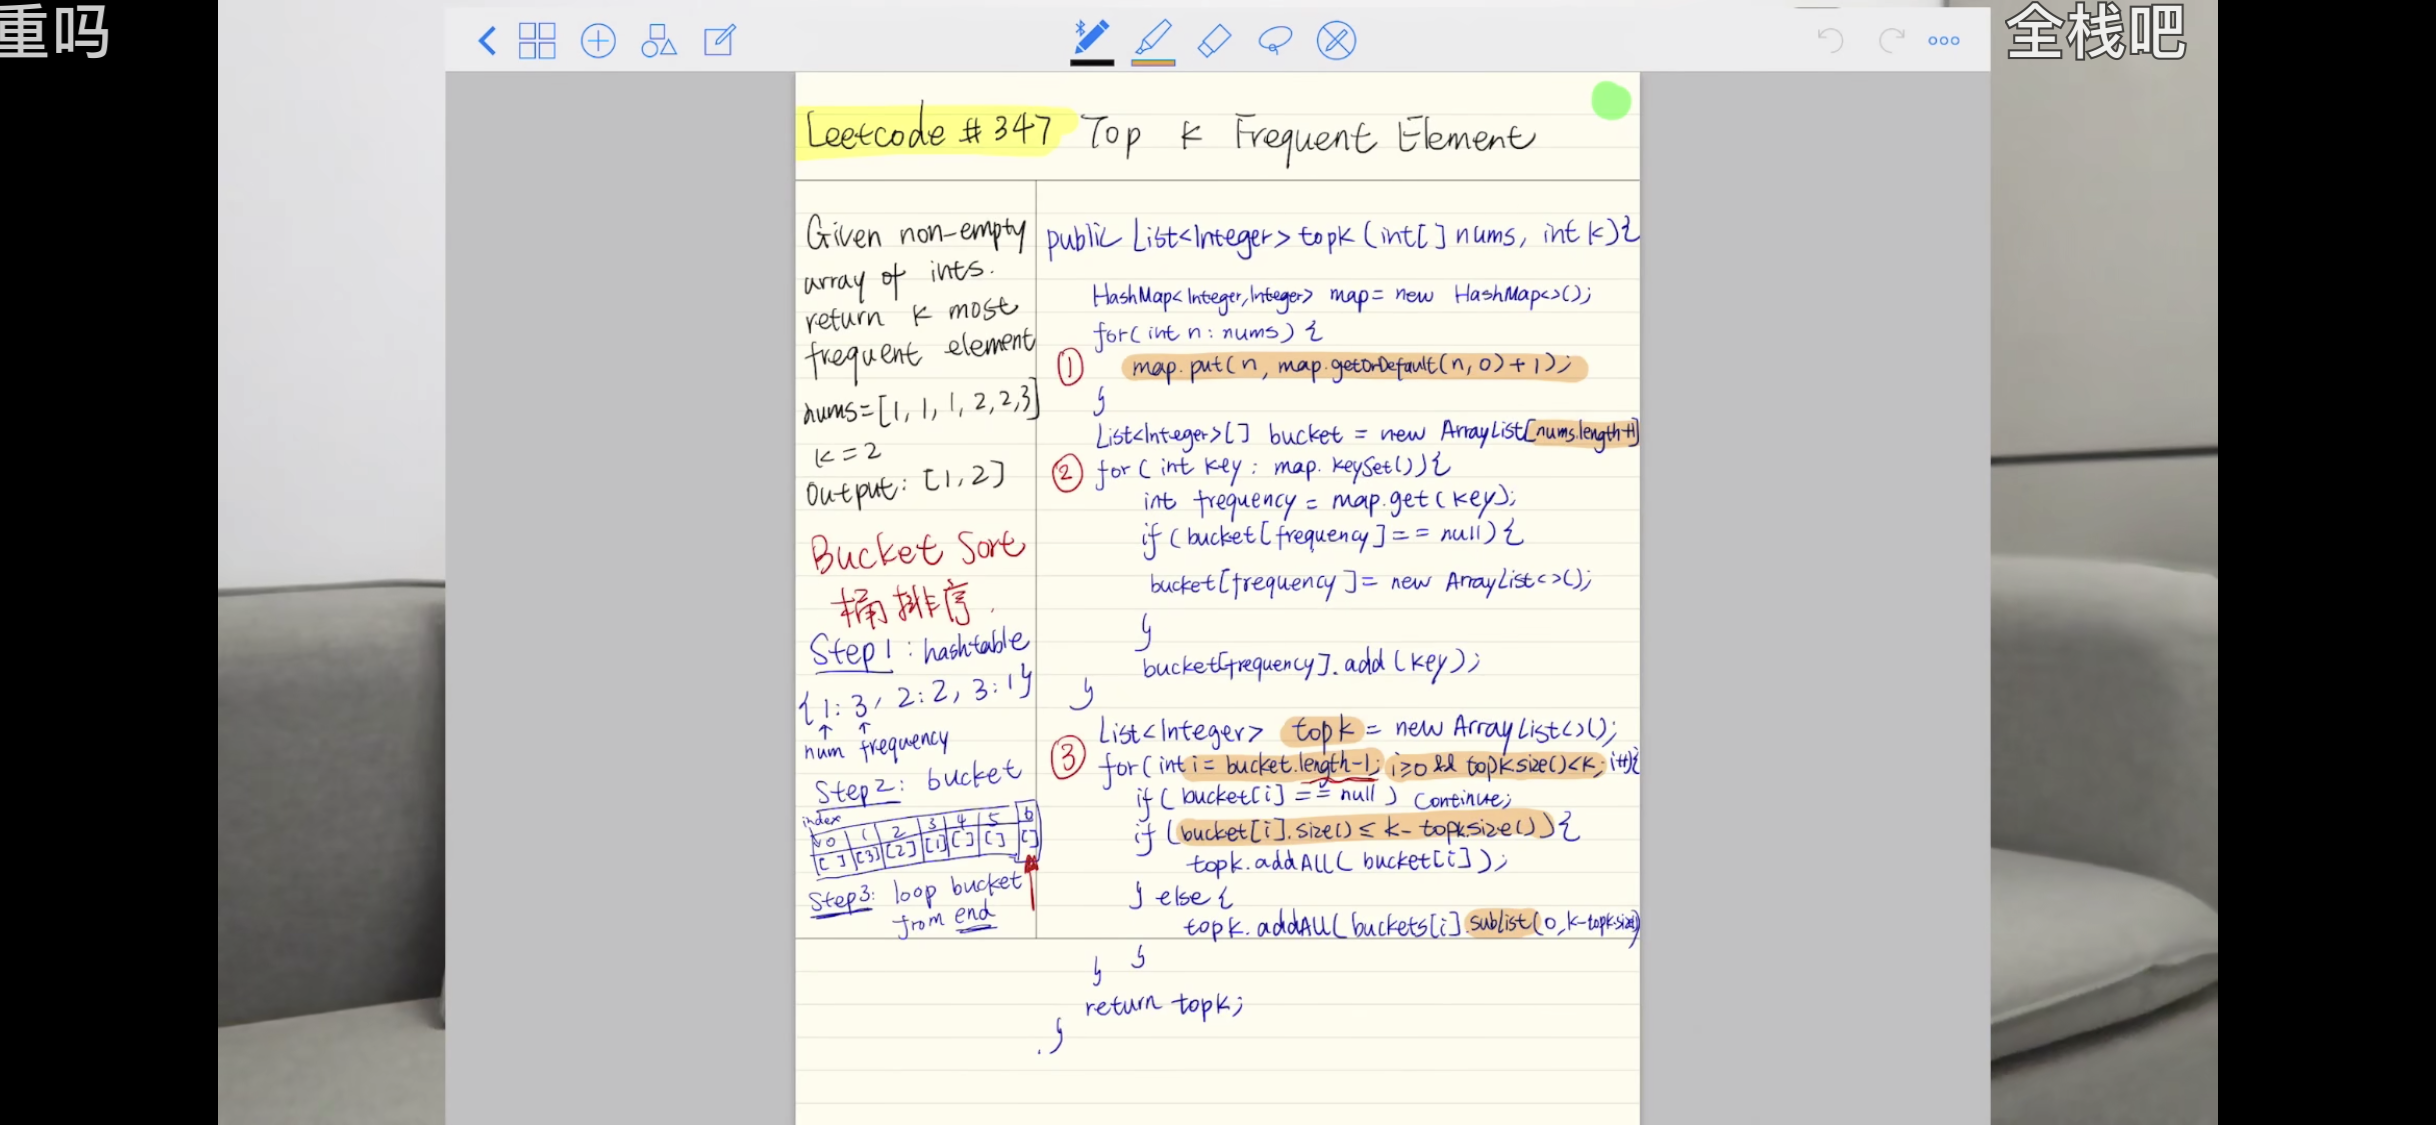 重吗
全栈吧
Leetcode # 347 Top K Frequent Element
Given non-empty
array of ints.
return k most
frequent element
nums=[1, 1, 1, 2, 2, 3]
k = 2
Output: [1, 2]
Bucket Sort
桶排序.
Step1: hashtable
{1: 3, 2: 2, 3: 1}
num frequency
Step2: bucket
index
0 1 2 3 4 5 6
[ ] [3] [2] [1] [ ] [ ] [ ]
Step3: loop bucket
from end
public List<Integer> topk (int[] nums, int k){
HashMap<Integer,Integer> map= new HashMap<>();
for( int n: nums) {
① map.put(n, map.getOrDefault(n, 0)+1);
}
List<Integer>[] bucket = new ArrayList[nums.length+1]
② for ( int key: map. keySet()){
int frequency = map.get(key);
if (bucket[frequency]== null){
bucket[frequency]= new ArrayList<>();
}
bucket[frequency].add (key);
}
List<Integer> topk = new ArrayList<>();
③ for(int i= bucket.length-1; i≥0 && topk.size()<k; i++){
if ( bucket[i] == null ) continue;
if (bucket[i].size() ≤ k- topk.size()){
topk.addALL( bucket[i]);
} else {
topk.addAll(buckets[i].sublist(0,k-topk.size)
}
}
return topk;
}